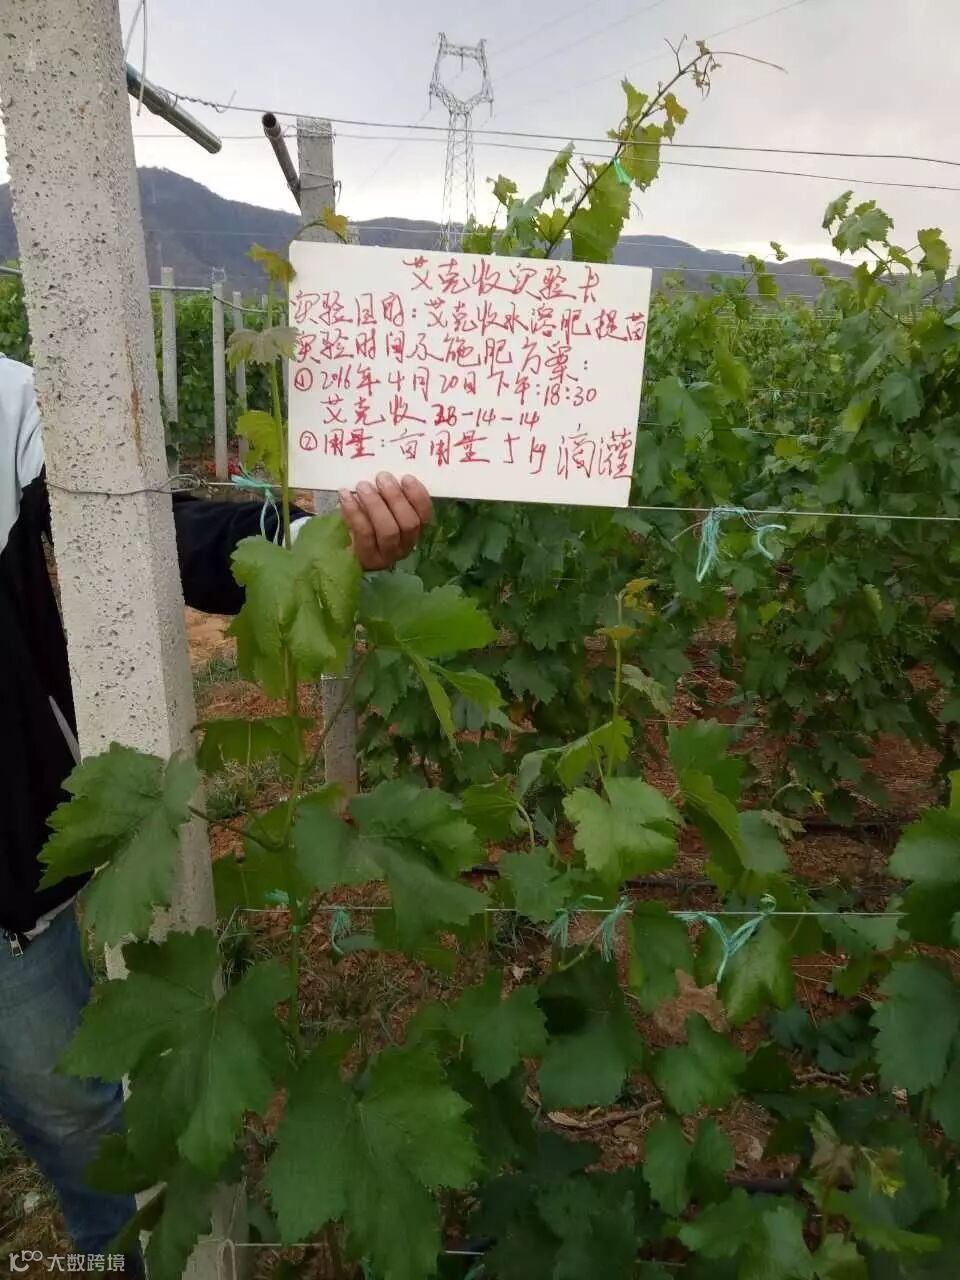 艾克收实验卡
实验目的：艾克收水溶肥提苗
实验时间及施肥方案：
①2016年4月20日下午：18:30
艾克收 28-14-14
②用量：亩用量5kg 滴灌
大数跨境